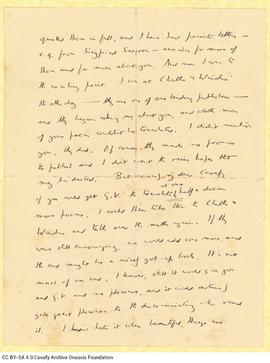 quotes them in full, and I have had private letters —
e.g. from Siegfried Sassoon — anxious for more of
them and for more about you. And now I come to
the exciting point. I was at Chatto & Windus'
the other day — they are one of our leading publishers —
and they began asking me about you, and whether more
of your poems couldn't be translated. I didn't mention
you, they did. Of course they made no promise
to publish and I don't want to raise hopes that
may be dashed. But my dear Cavafy,
if you could get G.V. to translate at once half a dozen
more poems, I could then take them to Chatto &
Windus and talk over the matter again. If they
were still encouraging, we could add some more, and
the end might be a nicely got up book. It's not
much of an end, I know, still it would give you
and G.V. and me pleasure, and it would certainly
give great pleasure to the discriminating who read
it. I know hate it when beautiful things are
CC BY-SA 4.0 Cavafy Archive Onassis Foundation